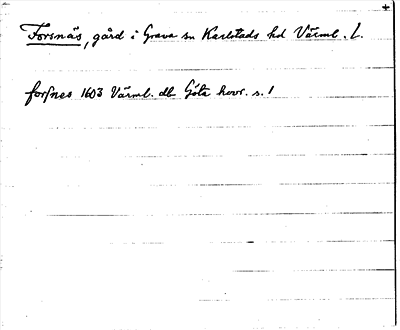 Forsnäs, gård i Grava sn Karlstads hd Värml. L.
forsnes 1603 Värml. db Göta hovr. s. 1